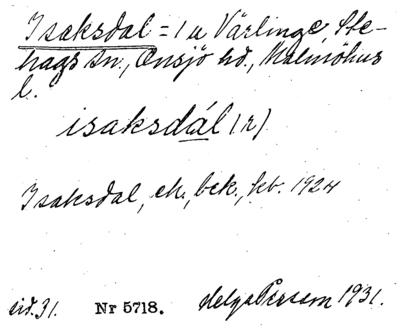 Isaksdal = 1 u Värlinge, Ste-
hags sn., Onsjö hd., Malmöhus
l.
isaksdál (r)
Isaksdal, ek., bek., kb. 1924
sid. 31. Nr 5718. Helge Persson 1931.